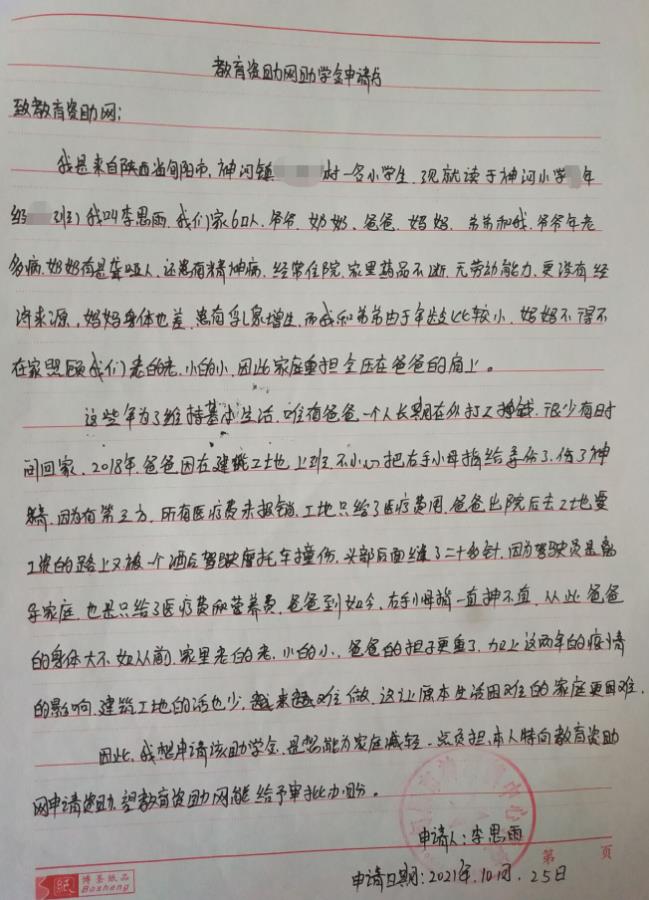 教育资助网助学金申请书
致教育资助网:
我是来自陕西省旬阳市,神河镇 村一名小学生,现就读于神河小学 年
级 班)我叫李思雨,我们家6口人,爷爷,奶奶、爸爸、妈妈,弟弟和我,爷爷年老
多病,奶奶有是聋哑人,还患有精神病,经常住院,家里药品不断,无劳动能力,更没有经
济来源,妈妈身体也差,患有乳腺增生,而我和弟弟由于年龄比较小,妈妈不得不
在家照顾我们老的老,小的小,因此家庭重担全压在爸爸的肩上。
这些年为了维持基本生活,唯有爸爸一个人长期在外打工挣钱,很少有时
间回家,2018年,爸爸因在建筑工地上班,不小心把右手小母指给弄伤了,伤了神
经,因为有第三方,所有医疗费未报销,工地只给了医疗费用,爸爸出院后去工地要
工资的路上又被一个酒后驾驶摩托车撞伤,头部后面缝了二十多针,因为驾驶员是离
异家庭,也是只给了医疗费和营养费,爸爸到如今,右手小母指一直抻不直,从此爸爸
的身体大不如从前,家里老的老,小的小,爸爸的担子更重了,加上这两年的疫情
的影响,建筑工地的活也少,越来越难做,这让原本生活困难的家庭更困难.
因此,我想申请该助学金,是想能为家庭减轻一点负担,本人特向教育资助
网申请资助,望教育资助网能给予审批办理。
申请人:李思雨
第 页
申请日期:2021年.10月.25日
博圣纸品
Bosheng